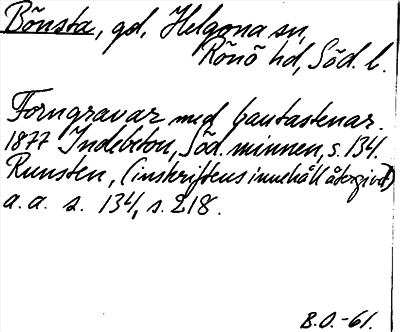 Bönsta, gd, Helgona sn,
Rönö hd, Söd. l.
Forngravar med bautastenar.
1877 Indebetou, Söd. minnen, s. 134.
Runsten, (inskriftens innehåll återgivet)
a. a. s. 134, s. 218.
B.O.-61.